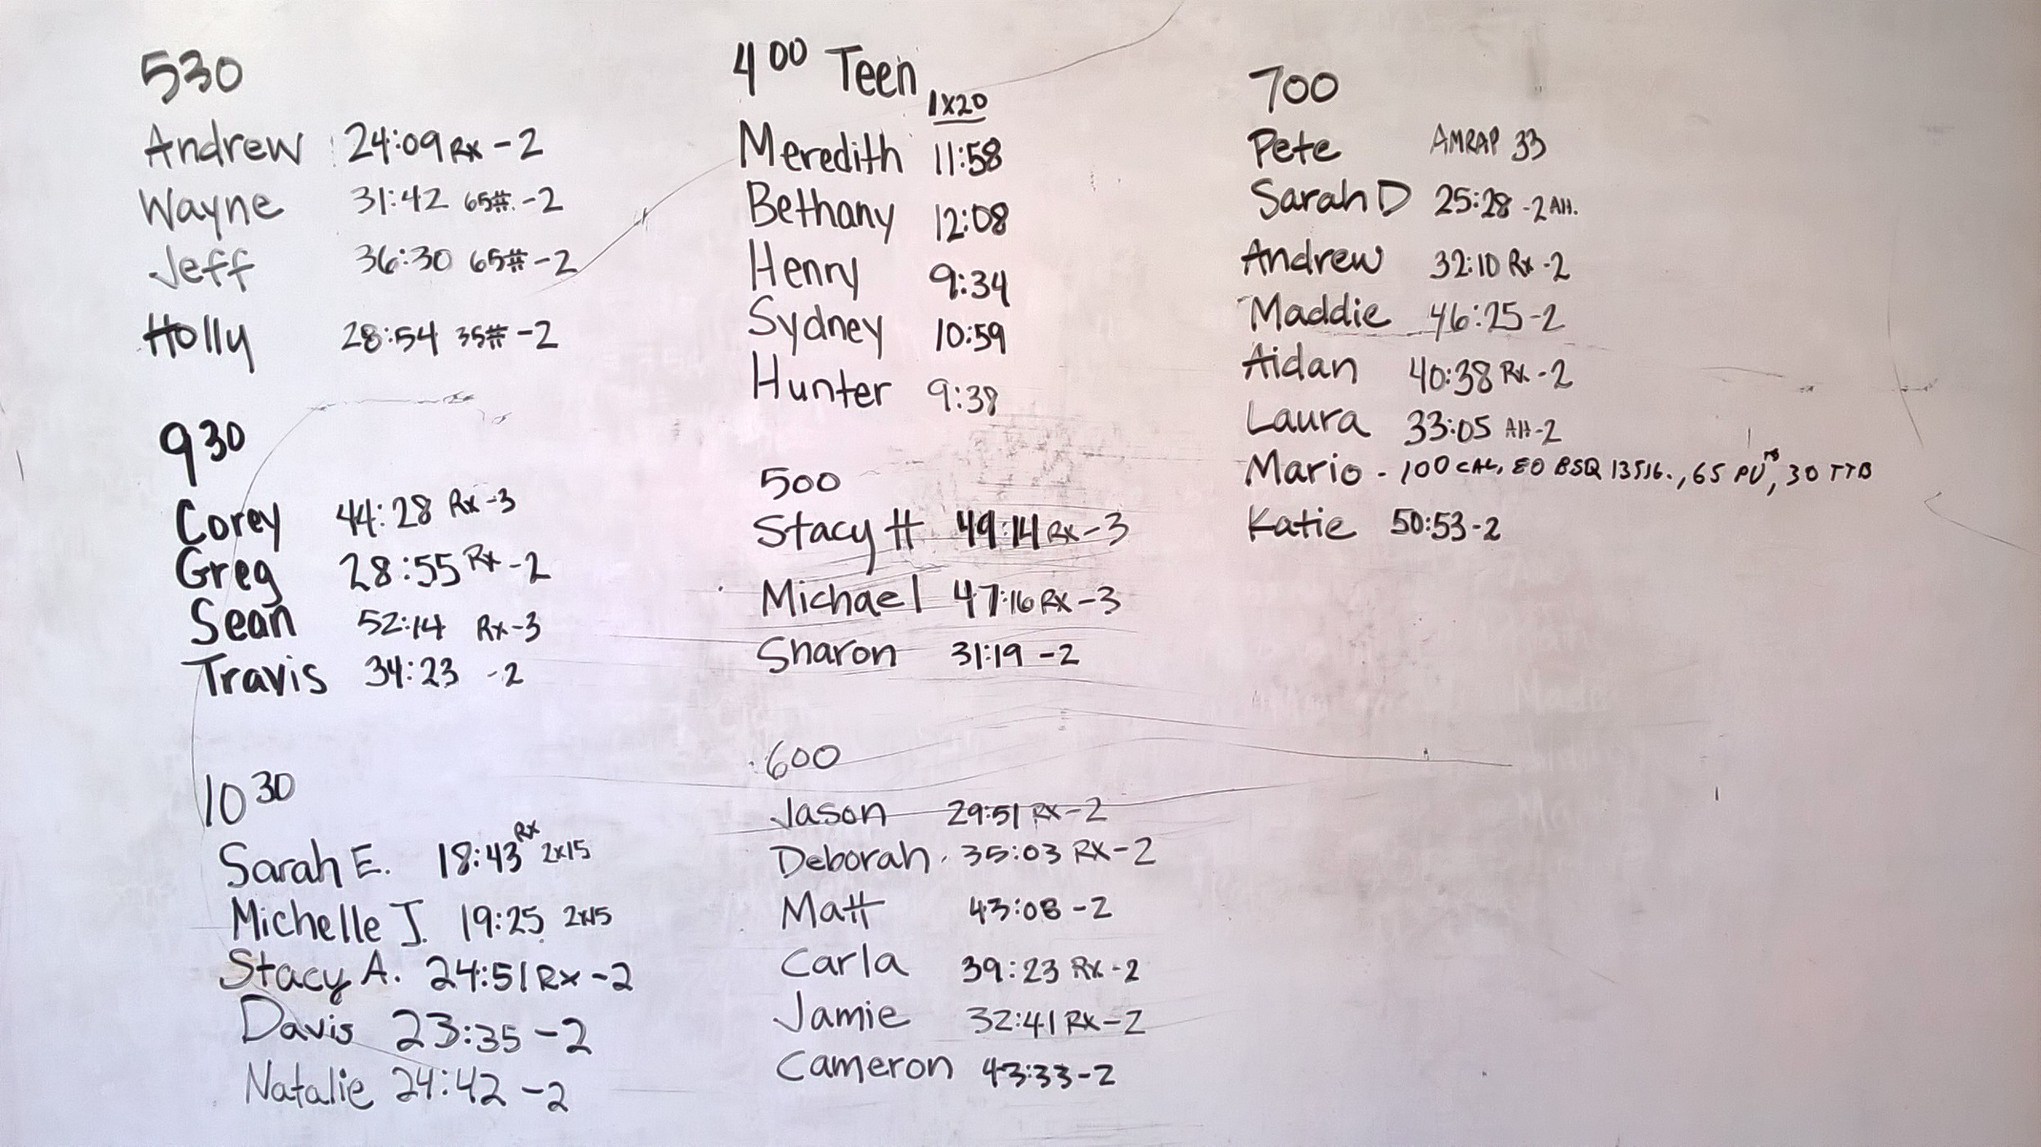 530
Andrew 24:09 Rx -2
Wayne 31:42 65#. -2
Jeff 36:30 65# -2
Holly 28:54 35# -2
930
Corey 44:28 Rx -3
Greg 28:55 Rx -2
Sean 52:14 Rx-3
Travis 34:23 -2
10 30
Sarah E. 18:43 Rx 2x15
Michelle J. 19:25 2x15
Stacy A. 24:51 Rx -2
Davis 23:35 -2
Natalie 24:42 -2
4 00 Teen
1x20
Meredith 11:58
Bethany 12:08
Henry 9:34
Sydney 10:59
Hunter 9:38
500
Stacy H 49:14 Rx -3
Michael 47:16 Rx -3
Sharon 31:19 -2
600
Jason 29:51 Rx -2
Deborah 35:03 Rx-2
Matt 43:08 -2
Carla 39:23 Rx -2
Jamie 32:41 Rx-2
Cameron 43:33-2
700
Pete AMRAP 33
Sarah D 25:28 -2 AH.
Andrew 32:10 Rx -2
Maddie 46:25-2
Aidan 40:38 Rx -2
Laura 33:05 AH-2
Mario - 100 CAL, 80 BSQ 135lb., 65 PU, 30 TTB
Katie 50:53-2